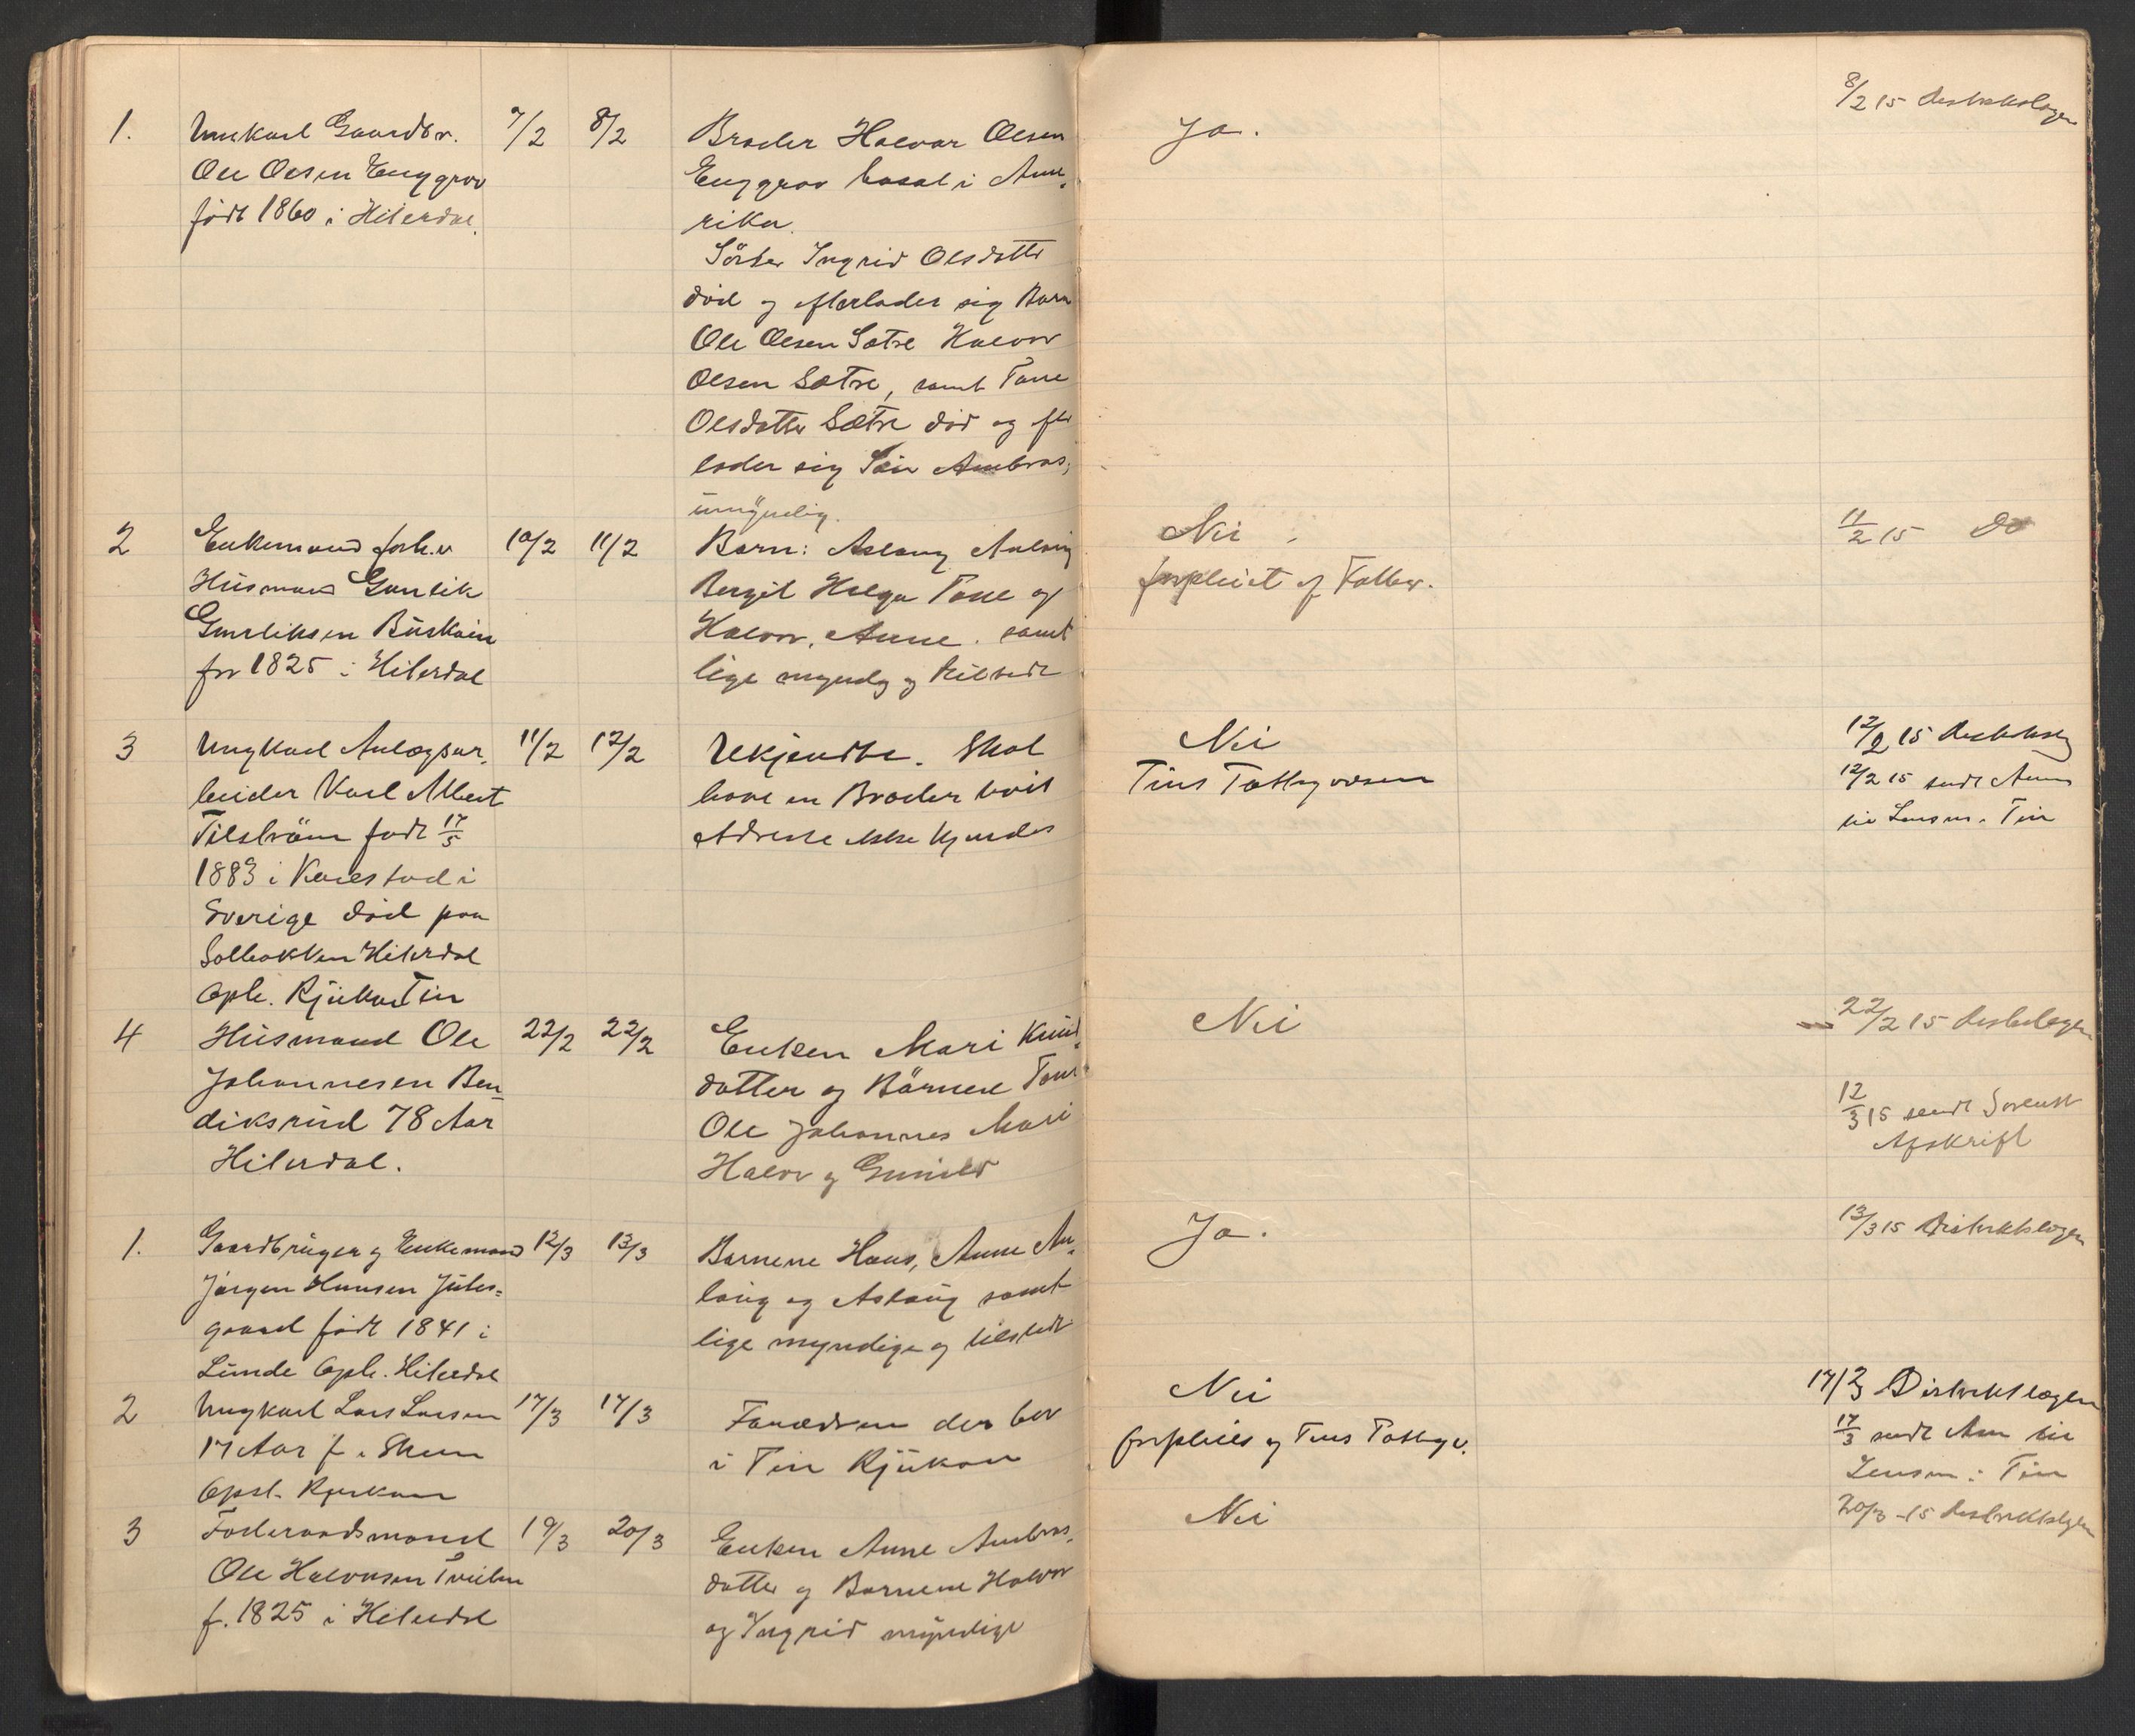 1.
Unkarl Gaardbr.
Ole Olsen Enggrav
født 1860 i Hiterdal.
7/2
8/2
Broder Halvor Olsen
Enggrav bosat i Ame-
rika.
Söster Ingrid Olsdatter
död og efterlader sig Barn
Ole Olsen Sætre Halvor
Olsen Sætre, samt Tone
Olsdatter Sætre död og efter
lader sig Sön Ambros,
umyndig.
Ja.
8/2 15 Distriktslægen
2
Enkemand forh.v
Husmand Gunlik
Gunliksen Buskåsen
før 1825 i Hiterdal
10/2
11/2
Barn: Aslaug Anlaug
Bergit Helga Tone og
Halvor, Anne. samt
lige myndig og tilstede
Nei
forpleiet af Fattigv.
11/2 15 Do
3
Ungkarl Anlægsar-
beider Karl Albert
Tilström født 17/5
1883 i Karlstad i
Sverige död paa
Solbakken Hiterdal
Oph. Rjukan Tin
11/2
12/2
Ukjendte. Skal
have en Broder hvis
Adresse ikke kjendes
Nei
Tins Fattigvæsen
12/2 15 Distriktslæg
12/2 15 sendt Anm
til Lensm. i Tin
4
Husmand Ole
Johannesen Ben-
diksrud 78 Aar
Hiterdal.
22/2
22/2
Enken Mari Knud-
datter og Börnene Tone
Ole Johannes Mari
Halvor og Gunild
Nei
22/2 15 Distriktslægen
12/3 15 sendt Sorensk
Afskrift
1.
Gaardbruger og Enkemand
Jörgen Hansen Jutes-
gaard født 1841 i
Lunde Oph. Hiterdal
12/3
13/3
Barnene Hans, Anne An-
laug og Aslaug samt
lige myndige og tilstede
Ja.
13/3 15 Distriktslægen
2
Ungkarl Lars Larsen
17 Aar f. i Skien
Opst. Rjukan
17/3
17/3
Forældrene der bor
i Tin Rjukan
Nei
forpleies af Tins Fattigv.
17/3 Distriktslægen
17/3 sendt Anm til
Lensm. i Tin
3
Foderaadsmand
Ole Halvorsen Tveiten
f. 1825 i Hiterdal
19/3
20/3
Enken Anne Ambros-
datter og Barnene Halvor
og Ingrid myndige
Nei
20/3 - 15 Distriktslægen